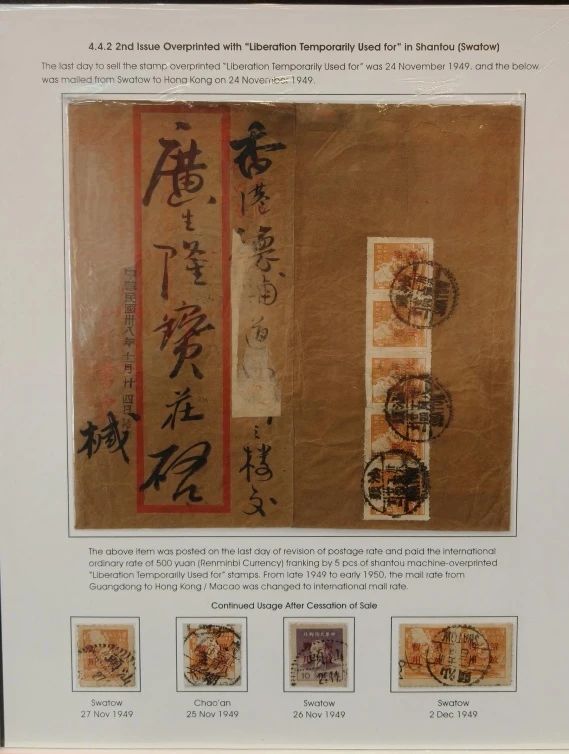 4.4.2 2nd Issue Overprinted with "Liberation Temporarily Used for" in Shantou (Swatow)
The last day to sell the stamp overprinted "Liberation Temporarily Used for" was 24 November 1949. and the below
was mailed from Swatow to Hong Kong on 24 November 1949.
香港德輔道
之樓交
廣生隆寶莊啓
中華民國卅八年十一月廿四日
椷
The above item was posted on the last day of revision of postage rate and paid the international
ordinary rate of 500 yuan (Renminbi Currency) franking by 5 pcs of shantou machine-overprinted
"Liberation Temporarily Used for" stamps. From late 1949 to early 1950, the mail rate from
Guangdong to Hong Kong / Macao was changed to international mail rate.
Continued Usage After Cessation of Sale
10
Swatow
27 Nov 1949
Chao'an
25 Nov 1949
Swatow
26 Nov 1949
Swatow
2 Dec 1949